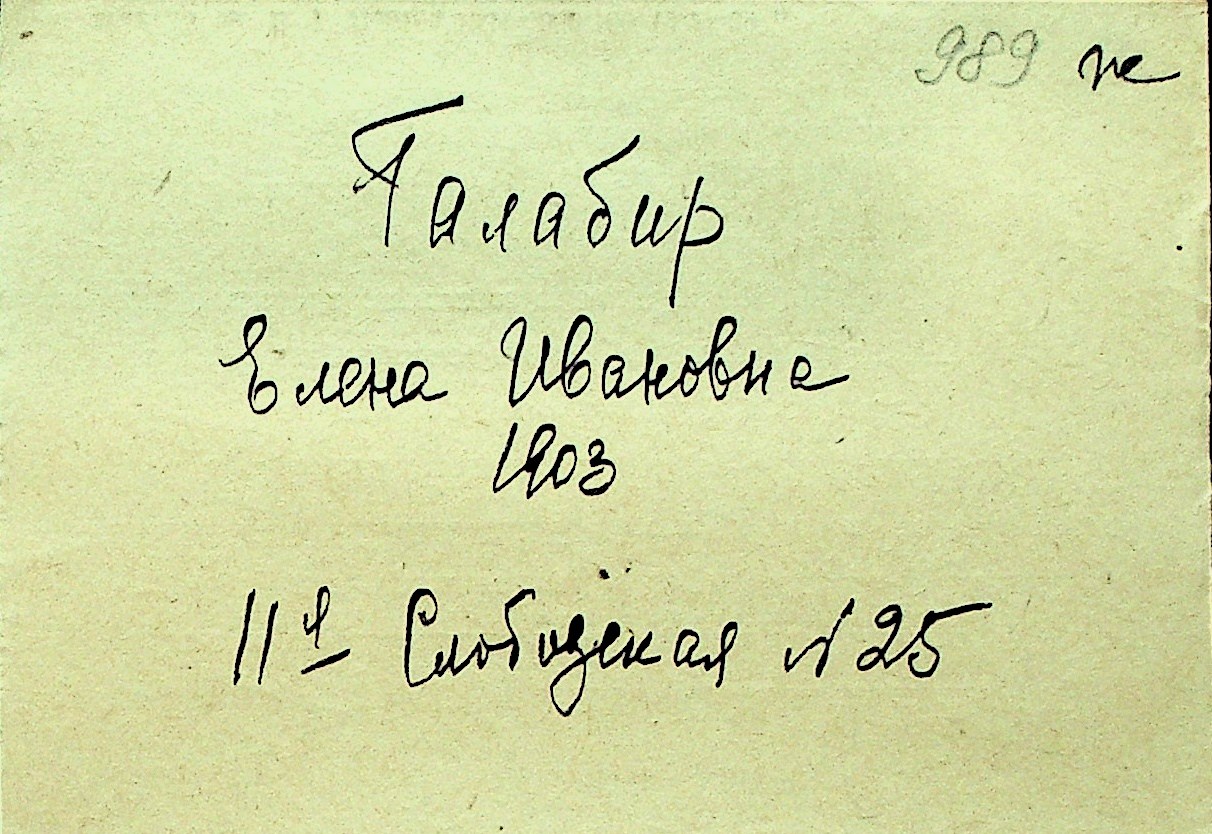 989 ж
Галабир
Елена Ивановна
1903
11я Слободская №25